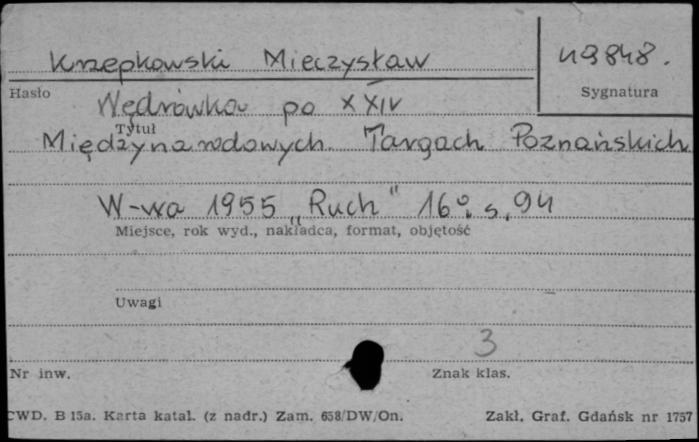 Krzepkowski Mieczysław
49848.
Hasło
Sygnatura
Wędrówka po XXIV
Tytuł
Międzynarodowych Targach Poznańskich
W-wa 1955 „Ruch" 16°. s. 94
Miejsce, rok wyd., nakładca, format, objętość
Uwagi
3
Nr inw.
Znak klas.
CWD. B 15a. Karta katal. (z nadr.) Zam. 658/DW/On.
Zakł. Graf. Gdańsk nr 1757